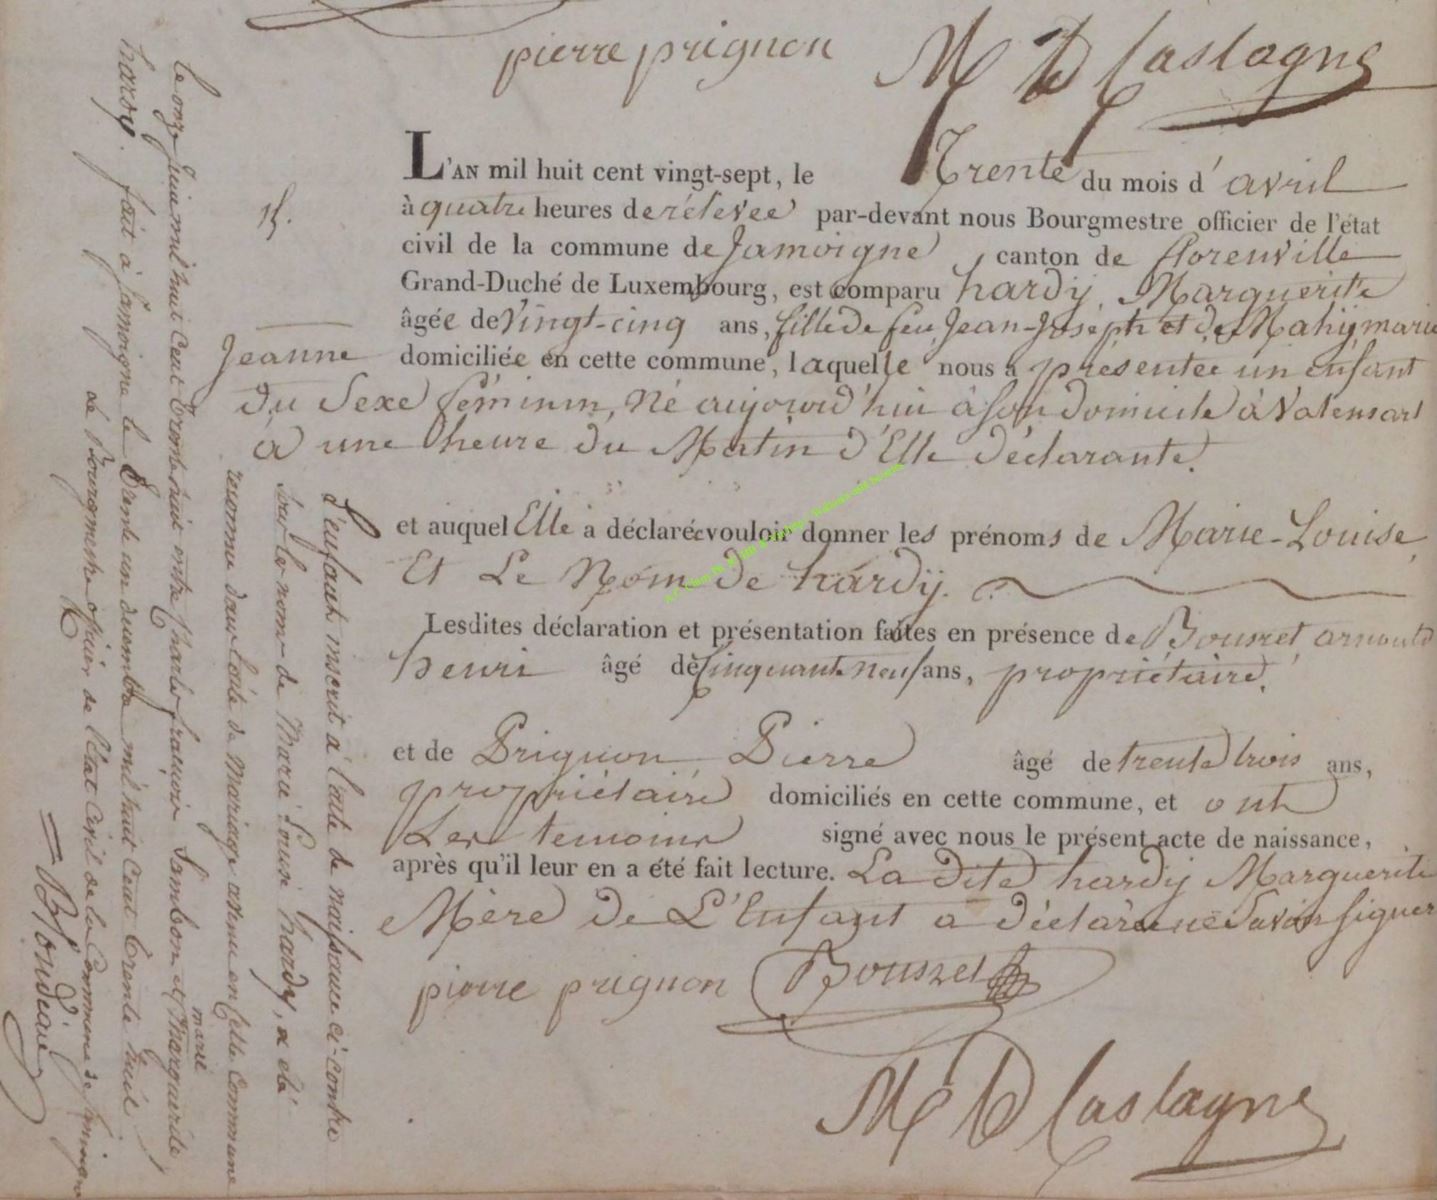 pierre prignon M D Castagne
L'AN mil huit cent vingt-sept, le Trente du mois d'avril
à quatre heures de rélevée par-devant nous Bourgmestre officier de l'état
civil de la commune de Jamoigne canton de florenville
Grand-Duché de Luxembourg, est comparu hardÿ, Marguerite
âgée de Vingt-cinq ans, fille de feu Jean-Joseph et de Mahÿ marie
domiciliée en cette commune, laquelle nous a présentée un enfant
du Sexe féminin, Né aujourd'hui à son domicile à Valensart
à une heure du Matin d'Elle déclarante.
et auquel Elle a déclaré vouloir donner les prénoms de Marie-Louise
Et Le Nom de hardÿ.
Lesdites déclaration et présentation faites en présence de Bousret arnould
henri âgé de Cinquante neuf ans, propriétaire,
et de Prignon Pierre âgé de trente trois ans,
propriétaire domiciliés en cette commune, et ont
Les temoins signé avec nous le présent acte de naissance,
après qu'il leur en a été fait lecture. La dite hardÿ Marguerite
Mère de L'Enfant a déclaré ne Savoir signer
pierre prignon Bousret
M D Castagne
15.
Jeanne
L'enfant inscrit à l'acte de naissance ci-contre
sous le nom de Marie Louise hardy, a été
reconnu dans l'acte de Mariage avenu en cette Commune
le onze Juin mil huit Cent Trente huit entre Charles françois Lambon et Marguerite
marie
hardy. fait à Jamoigne le Trente un décembre mil huit Cent Trente huit
le Bourgmestre officier de l'Etat Civil de la Commune de Jamoigne